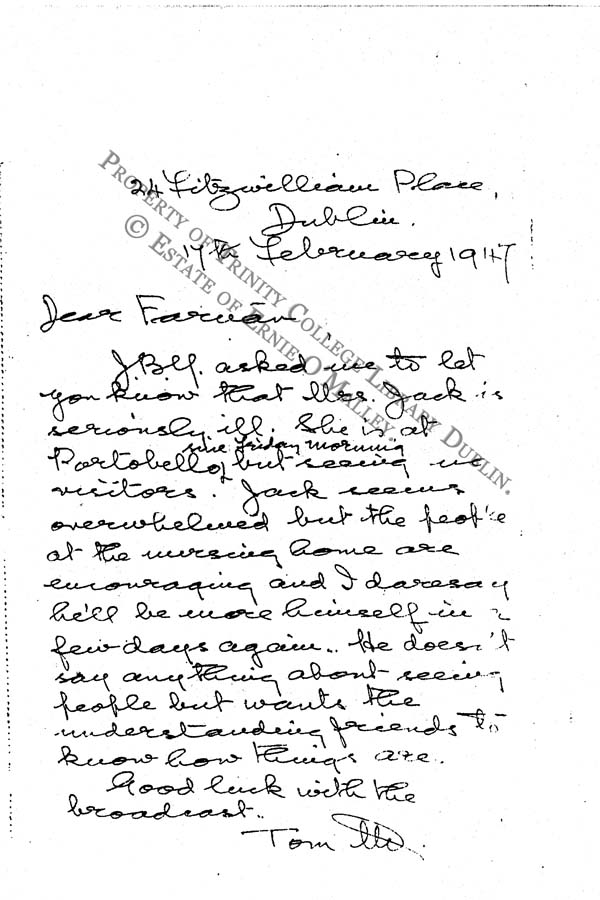 24 Fitzwilliam Place,
Dublin.
17th February 1947
Dear Earnán,
J.B.Y. asked me to let
you know that Mrs. Jack is
seriously ill. She is at
since Friday morning
Portobello but seeing no
visitors. Jack seems
overwhelmed but the people
at the nursing home are
encouraging and I daresay
he'll be more himself in a
few days again.. He doesn't
say anything about seeing
people but wants the
understanding friends to
know how things are.
Good luck with the
broadcast..
Tom
PROPERTY OF TRINITY COLLEGE LIBRARY DUBLIN.
© ESTATE OF ERNIE O'MALLEY.